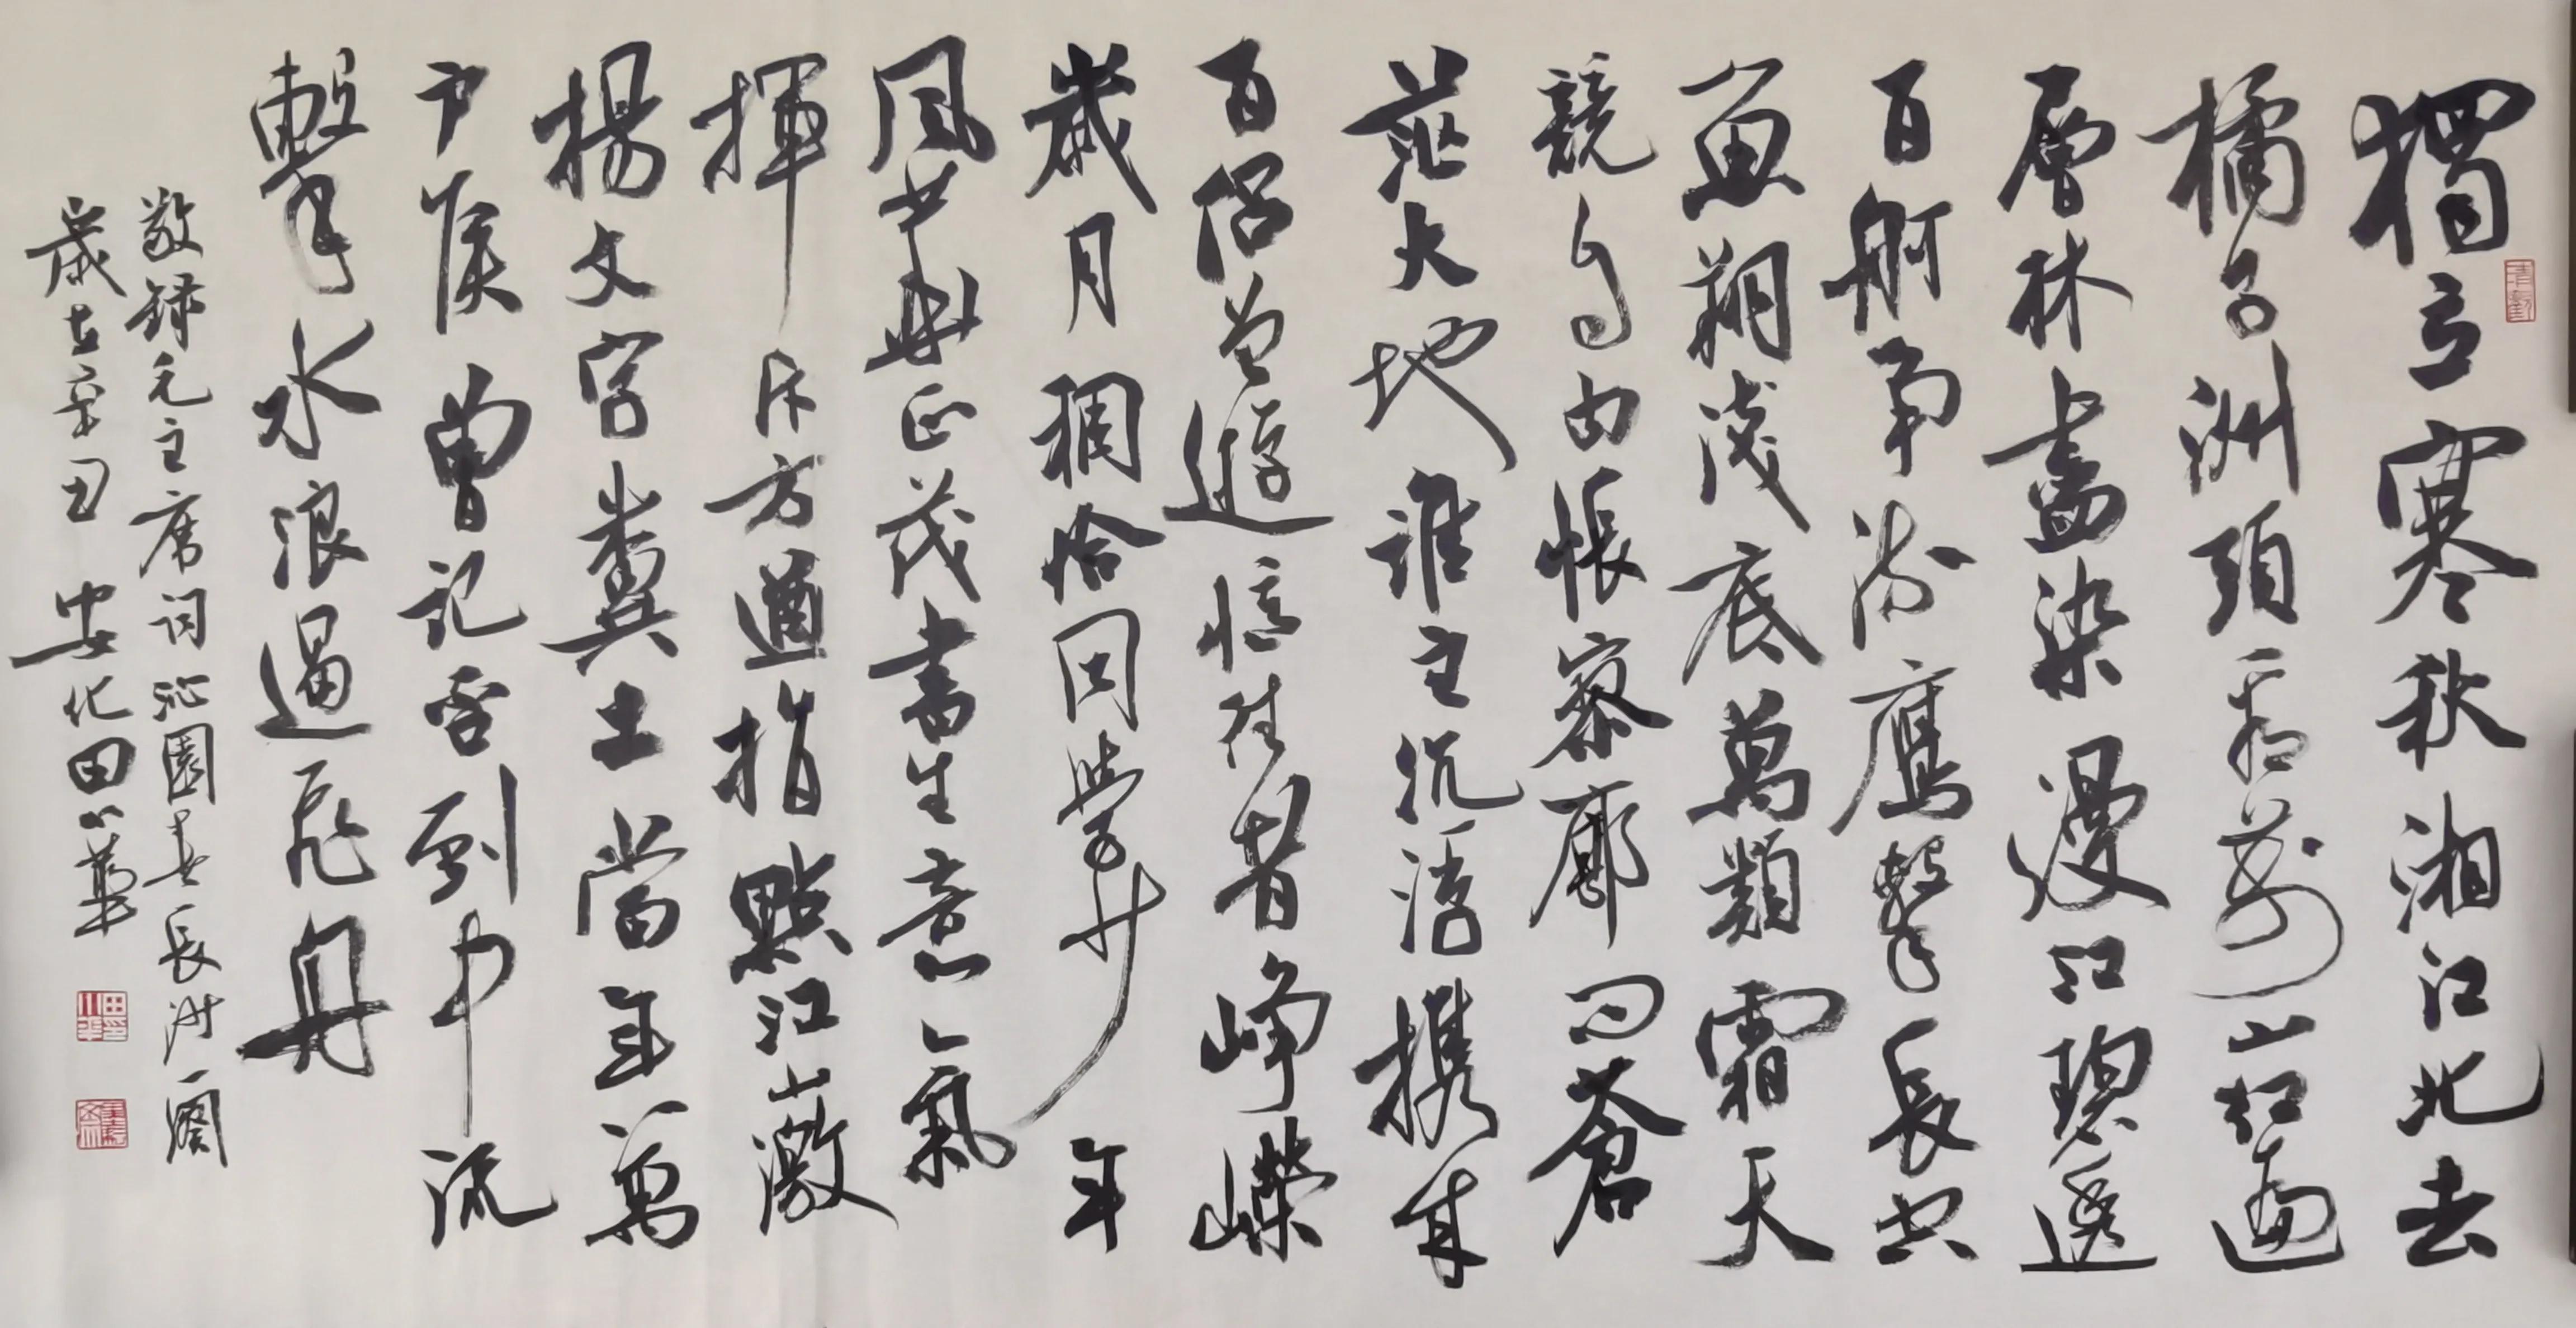 獨立寒秋湘江北去
橘子洲頭看萬山紅遍
層林盡染漫江碧透
百舸爭流鷹擊長空
魚翔淺底萬類霜天
競自由悵寥廓問蒼
茫大地誰主沉浮攜來
百侶曾遊憶往昔崢嶸
歲月稠恰同學少年
風華正茂書生意氣
揮斥方遒指點江山激
揚文字糞土當年萬
户侯曾記否到中流
擊水浪遏飛舟
敬録毛主席詞沁園春長沙一闋
歲在辛丑 安化田華